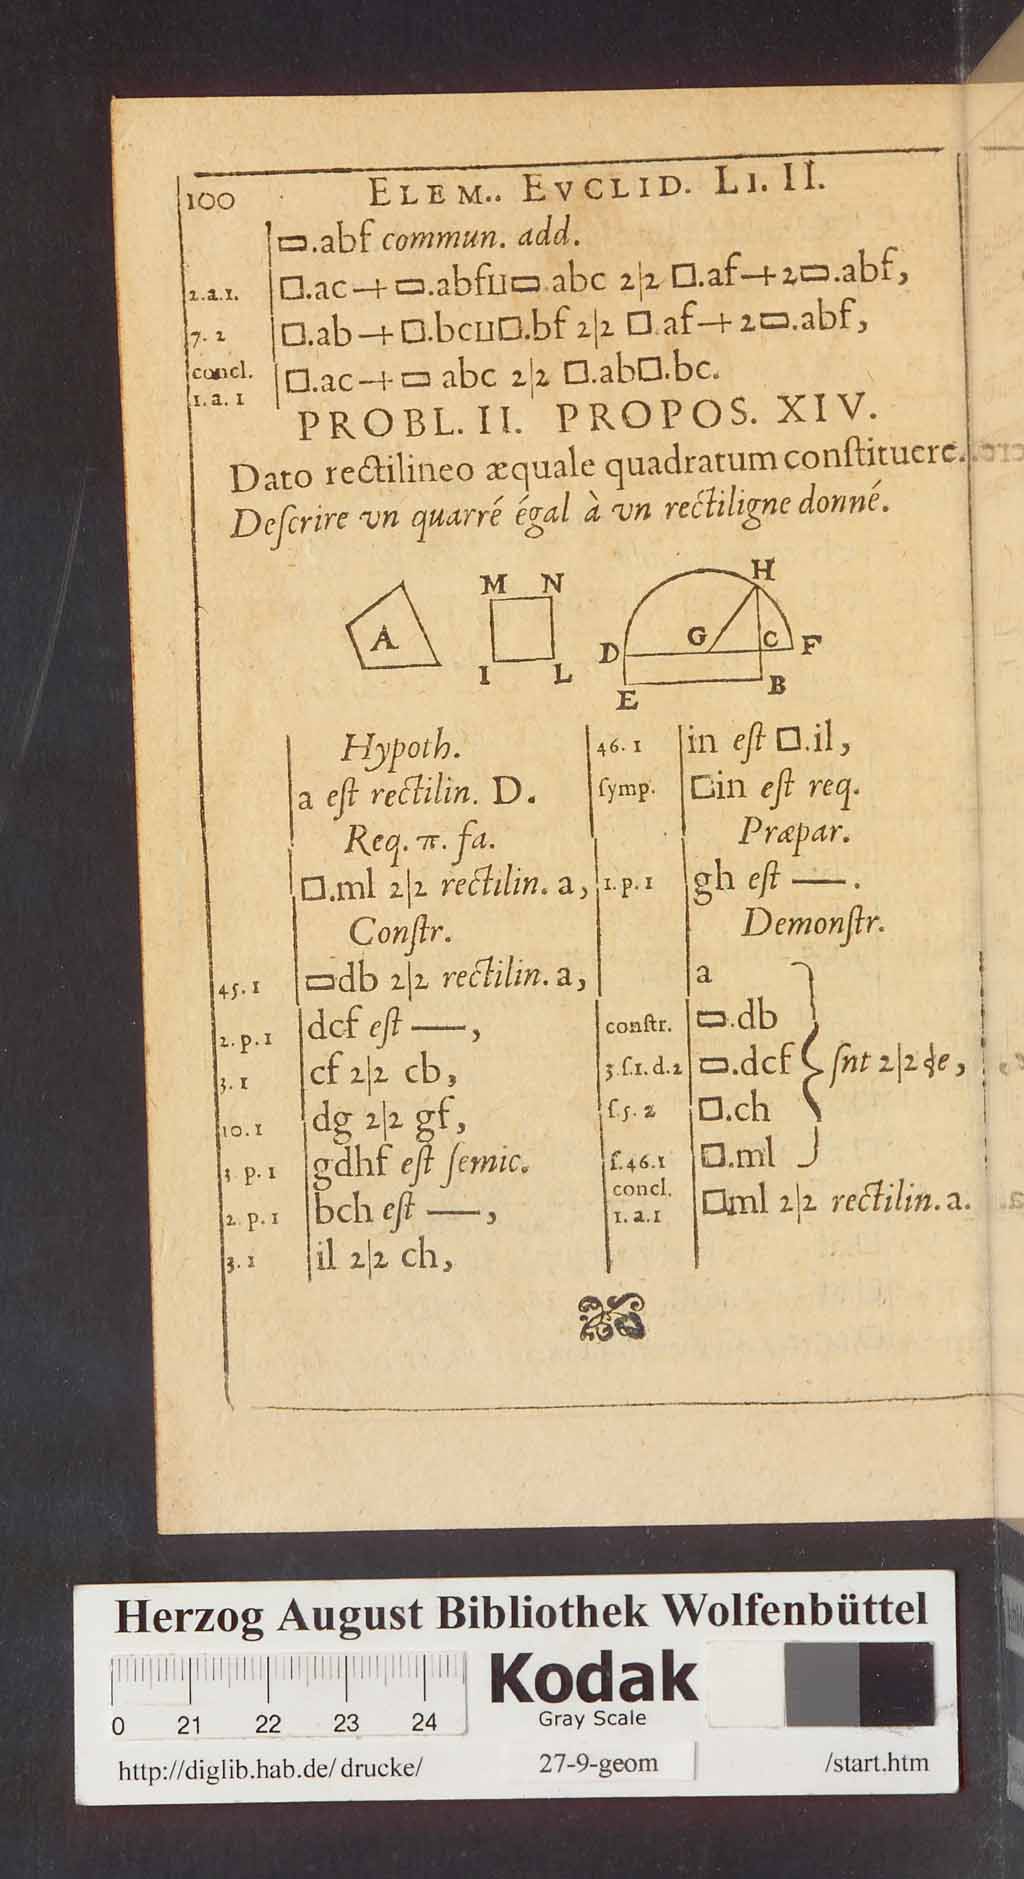 100 ELEM.. EVCLID. LI. II.
▭.abf commun. add.
2.a.1. □.ac+▭.abf⊔▭.abc 2|2 □.af+2▭.abf,
7. 2 □.ab+□.bc⊔□.bf 2|2 □.af+2▭.abf,
concl.
1. a. 1 □.ac+▭ abc 2|2 □.ab□.bc.
PROBL. II. PROPOS. XIV.
Dato rectilineo æquale quadratum conſtituere.
Deſcrire vn quarré égal à vn rectiligne donné.
A
M N
I L
H
D G C F
E B
Hypoth.
a eſt rectilin. D.
Req. π. fa.
□.ml 2|2 rectilin. a,
Conſtr.
45. 1 ▭db 2|2 rectilin. a,
2. p. 1 dcf eſt —,
3. 1 cf 2|2 cb,
10. 1 dg 2|2 gf,
3 p. 1 gdhf eſt ſemic.
2. p. 1 bch eſt —,
3. 1 il 2|2 ch,
46. 1 in eſt □.il,
ſymp. □in eſt req.
Præpar.
1. p. 1 gh eſt —.
Demonſtr.
a
conſtr. ▭.db
3.ſ.1. d.2 ▭.dcf } ſnt 2|2 de,
ſ.5. 2 □.ch
ſ.46.1 □.ml
concl.
1. a. 1 □ml 2|2 rectilin. a.
Herzog August Bibliothek Wolfenbüttel
0 21 22 23 24
Kodak
Gray Scale
http://diglib.hab.de/ drucke/ 27-9-geom /start.htm